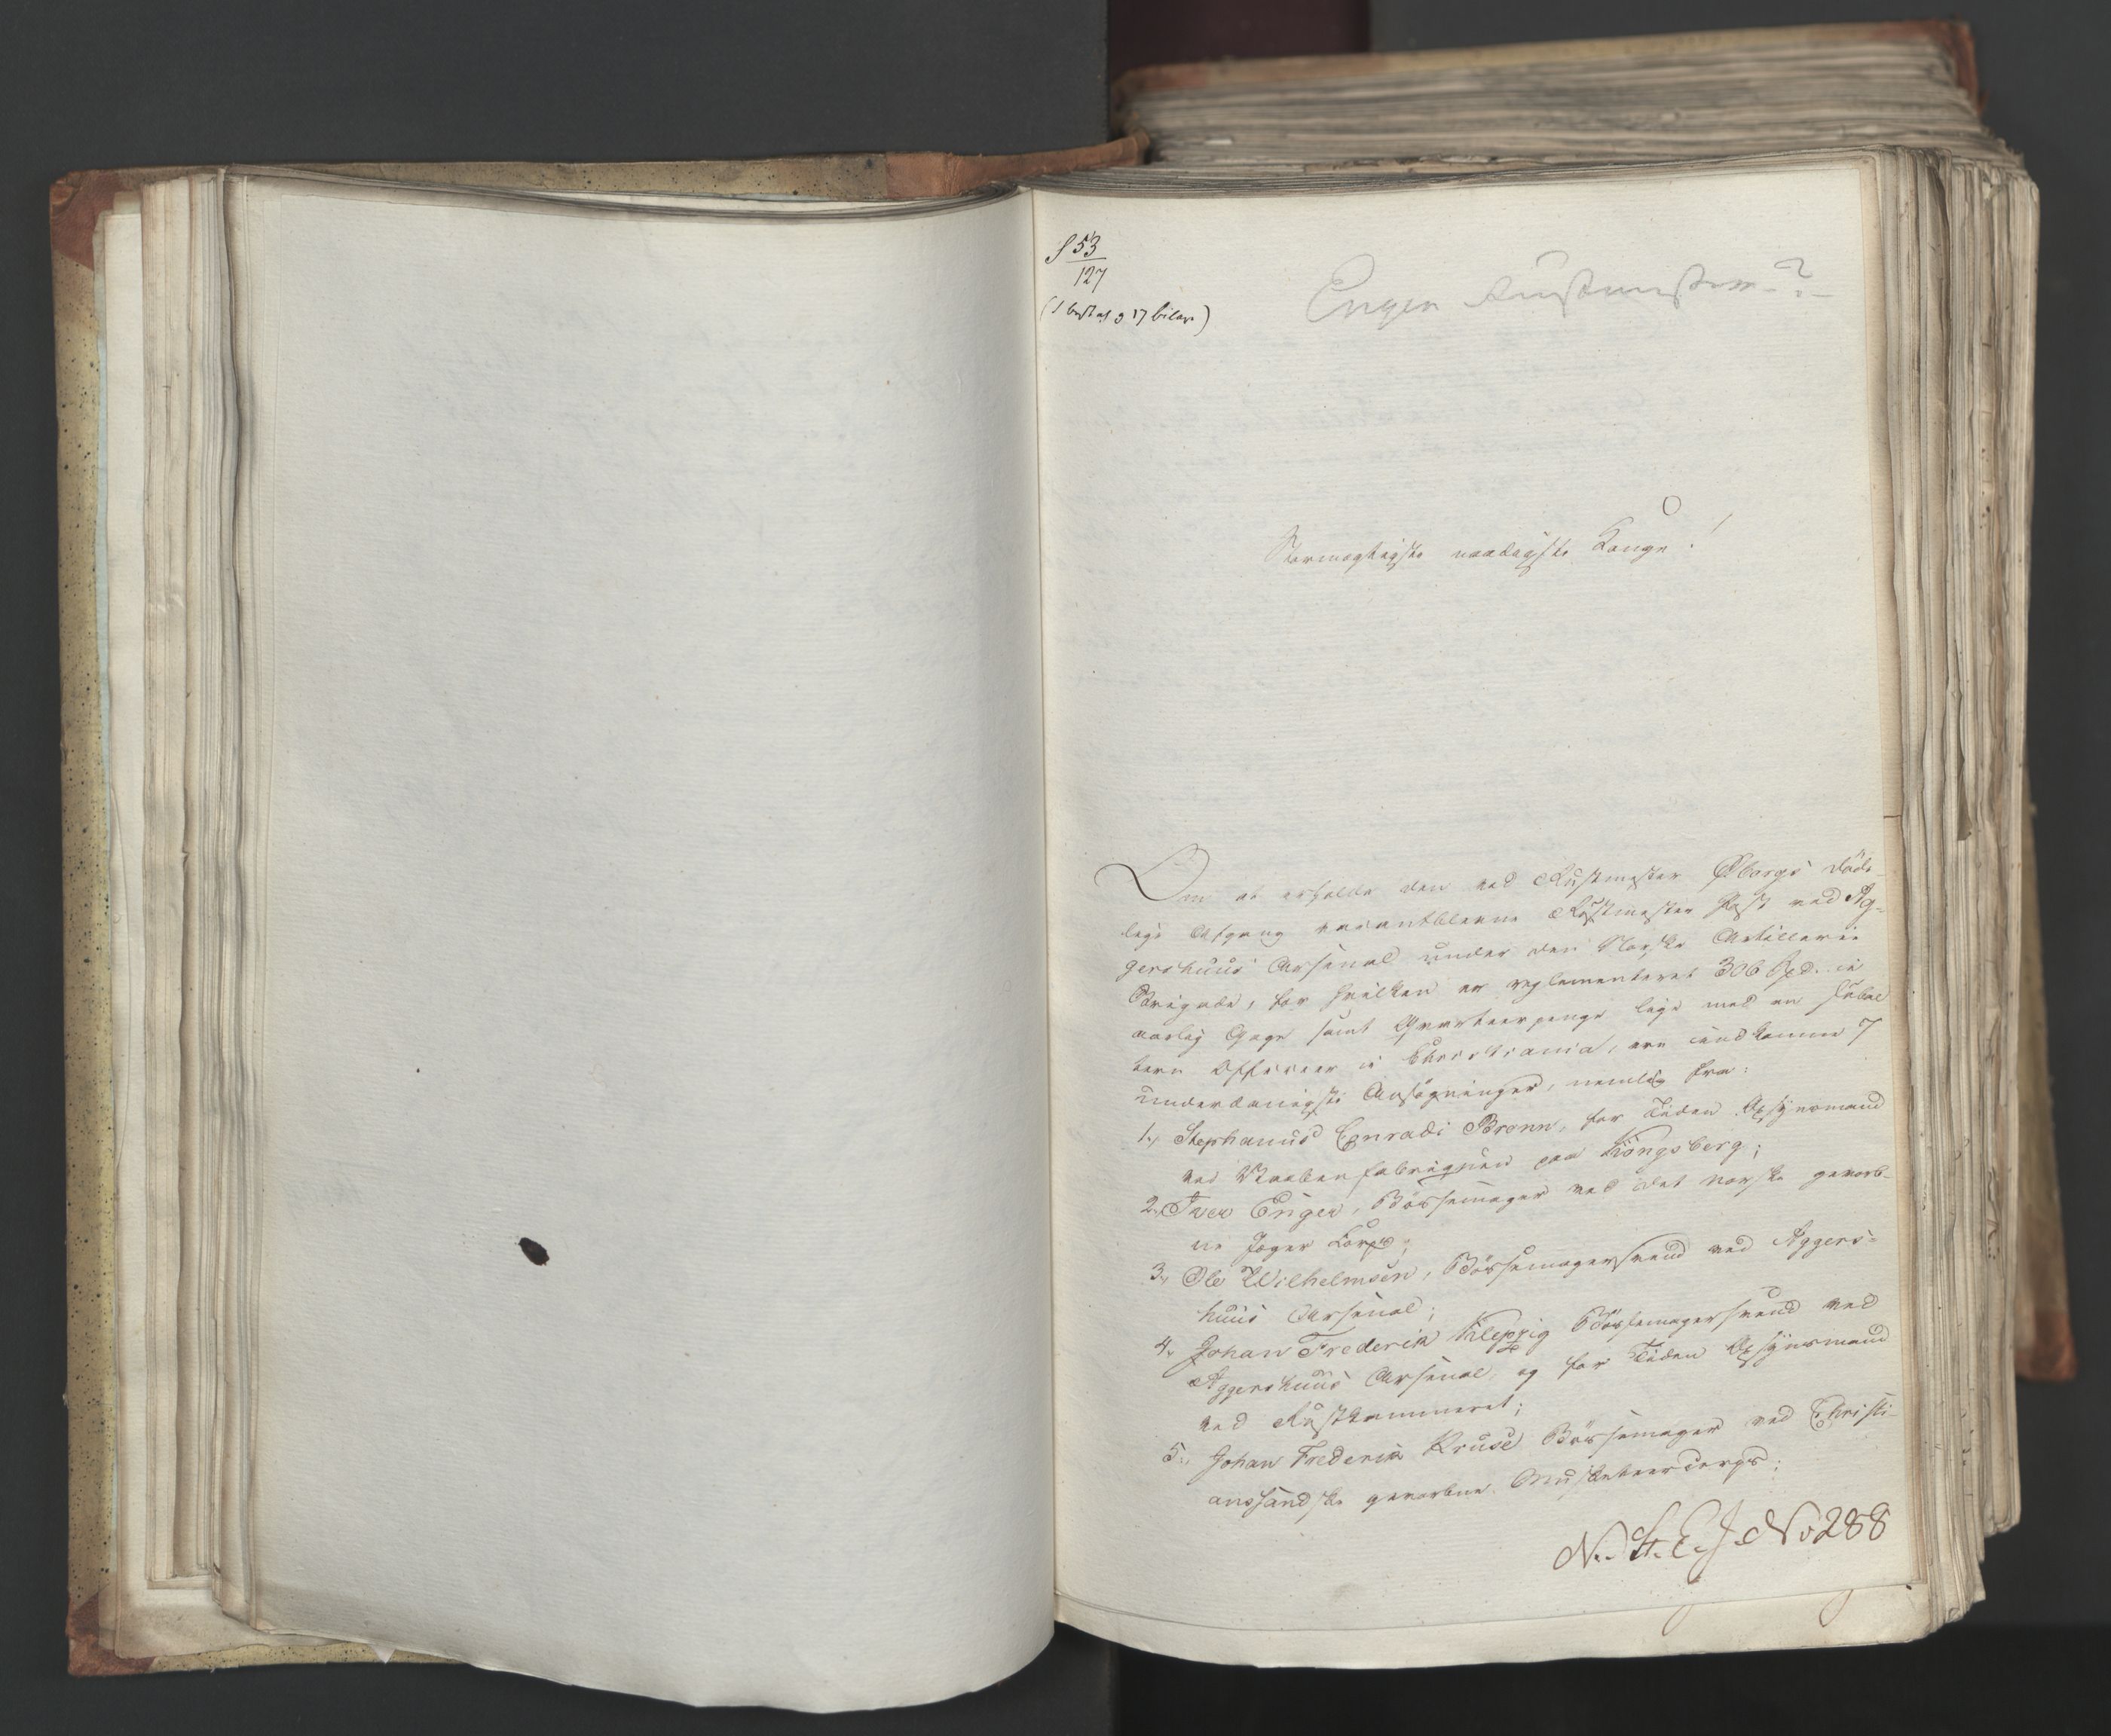 S 53
127
Enger Rustmester?
Stormægtigste naadigste Konge!
Om at erholde den ved Rustmester Øbergs döde-
lige Afgang vacantblevne Rustmester Post ved Ag-
gershuus Arsenal under den Norske Artillerie
Brigade, for hvilken er reglementeret 306 Spd. i
aarlig Gage samt Qvarteerpenge lige med en subal
tern Officeer i Christiania, ere indkomne 7
underdanigste Ansögninger, nemlig fra:
1., Stephanus Conradi Brønn, for Tiden Opsynsmand
ved Vaabenfabriquen paa Kongsberg;
2., Iver Enger, Bössemager ved det norske gevorb-
ne Jæger Corps;
3., Ole Wilhelmsen, Bössemagersvend ved Aggers-
huus Arsenal;
4., Johan Frederik Kleppig Bössemagersvend ved
Aggershuus Arsenal, og for Tiden Opsynsmand
ved Rustkammeret;
5., Johan Frederik Kruse Bössemager ved Christi-
anssandske gevorbne Musketeercorps;
N. St. E. J. No 288